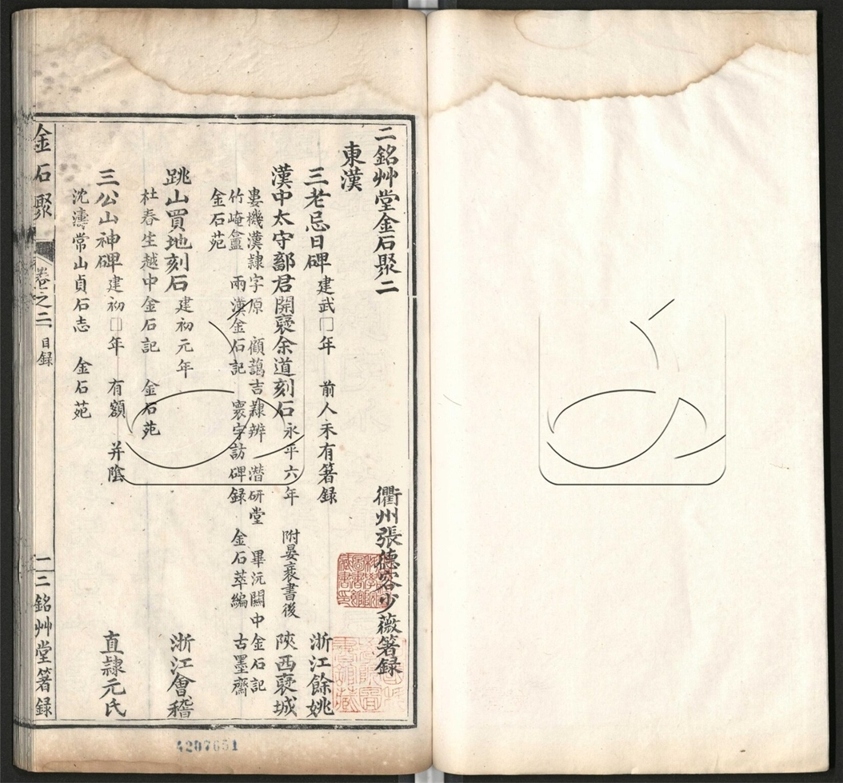 二銘艸堂金石聚二
衢州張德容少薇箸錄
東漢
三老忌日碑 建武□年 前人未有箸錄 浙江餘姚
漢中太守鄐君開褒余道刻石 永平六年 附晏袤書後 陝西褒城
婁機漢隸字原 顧藹吉隸辨 潛研堂 畢沅關中金石記
竹崦盦 兩漢金石記 寰宇訪碑錄 金石萃編 古墨齋
金石苑
跳山買地刻石 建初元年 浙江會稽
杜春生越中金石記 金石苑
三公山神碑 建初□年 有額 并陰 直隸元氏
沈濤常山貞石志 金石苑
金石聚 卷之二 目錄 一 二銘艸堂箸錄
4207651